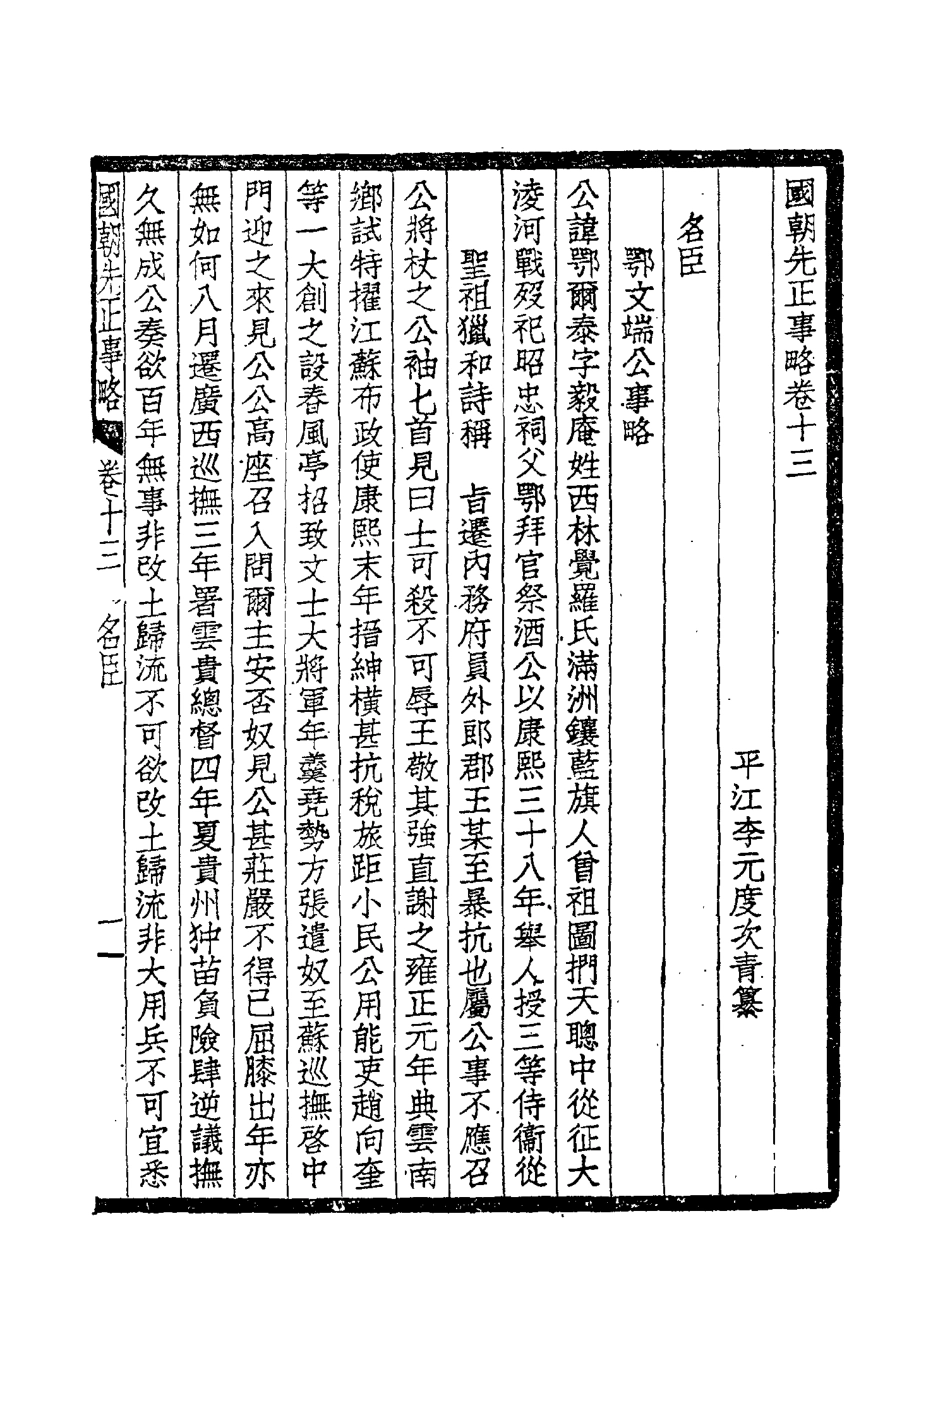 國朝先正事略卷十三
平江李元度次青纂
名臣
鄂文端公事略
公諱鄂爾泰字毅庵姓西林覺羅氏滿洲鑲藍旗人曾祖圖捫天聰中從征大
淩河戰歿祀昭忠祠父鄂拜官祭酒公以康熙三十八年舉人授三等侍衞從
聖祖獵和詩稱　旨遷內務府員外郎郡王某至暴抗也屬公事不應召
公將杖之公袖匕首見曰士可殺不可辱王敬其強直謝之雍正元年典雲南
鄉試特擢江蘇布政使康熙末年搢紳橫甚抗稅旅距小民公用能吏趙向奎
等一大創之設春風亭招致文士大將軍年羹堯勢方張遣奴至蘇巡撫啓中
門迎之來見公公高座召入問爾主安否奴見公甚莊嚴不得已屈膝出年亦
無如何八月遷廣西巡撫三年署雲貴總督四年夏貴州狆苗負險肆逆議撫
久無成公奏欲百年無事非改土歸流不可欲改土歸流非大用兵不可宜悉
國朝先正事略　卷十三　名臣　一